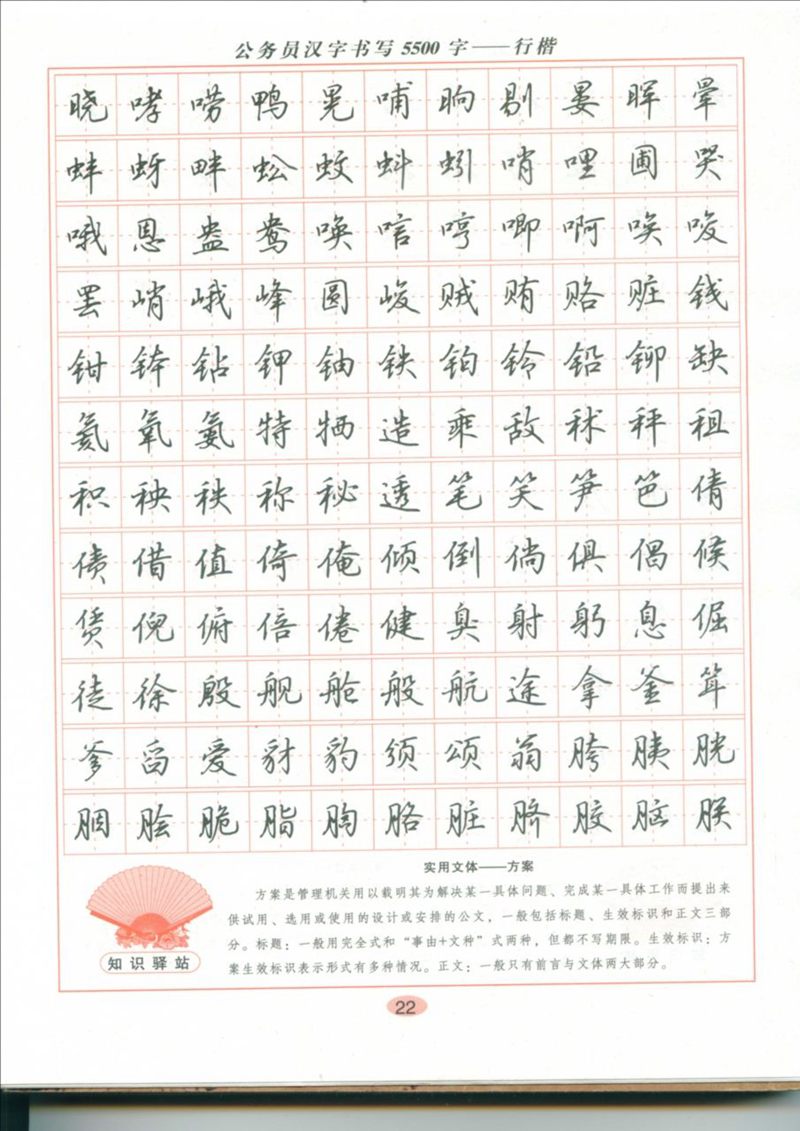 公务员汉字书写5500字——行楷
晓哮唠鸭晃哺晌剔晏晖晕
蚌蚜畔蚣蚊蚪蚓哨哩圃哭
哦恩盎鸯唤唁哼唧啊唉唆
罢峭峨峰圆峻贼贿赂赃钱
钳钵钻钾铀铁铂铃铅铆缺
氦氧氨特牺造乘敌秫秤租
积秧秩称秘透笔笑笋笆倩
债借值倚俺倾倒倘俱倡候
赁倪俯倍倦健臭射躬息倔
徒徐殷舰舱般航途拿釜耸
爹舀爱豺豹须颂翁胯胰胱
胭脍脆脂胸胳脏脐胶脑朕
实用文体——方案
方案是管理机关用以载明其为解决某一具体问题、完成某一具体工作而提出来
供试用、选用或使用的设计或安排的公文，一般包括标题、生效标识和正文三部
分。标题：一般用完全式和“事由+文种”式两种，但都不写期限。生效标识：方
案生效标识表示形式有多种情况。正文：一般只有前言与文体两大部分。
知识驿站
22